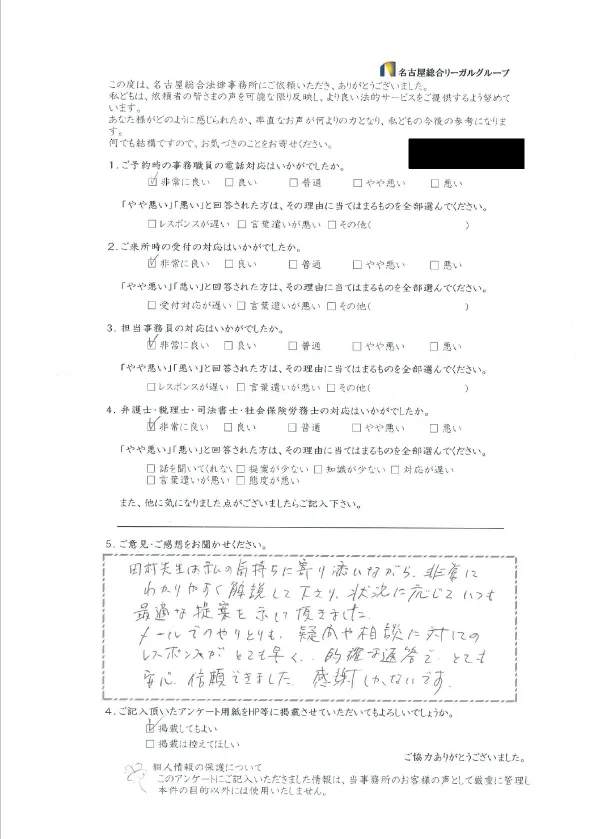 名古屋総合リーガルグループ
この度は、名古屋総合法律事務所にご依頼いただき、ありがとうございました。
私どもは、依頼者の皆さまの声を可能な限り反映し、より良い法的サービスをご提供するよう努めて
います。
あなた様がどのように感じられたか、率直なお声が何よりの力となり、私どもの今後の参考になりま
す。
何でも結構ですので、お気づきのことをお寄せください。
1．ご予約時の事務職員の電話対応はいかがでしたか。
☑非常に良い □良い □普通 □やや悪い □悪い
「やや悪い」「悪い」と回答された方は、その理由に当てはまるものを全部選んでください。
□レスポンスが遅い □言葉遣いが悪い □その他( )
2．ご来所時の受付の対応はいかがでしたか。
☑非常に良い □良い □普通 □やや悪い □悪い
「やや悪い」「悪い」と回答された方は、その理由に当てはまるものを全部選んでください。
□受付対応が遅い □言葉遣いが悪い □その他( )
3．担当事務員の対応はいかがでしたか。
☑非常に良い □良い □普通 □やや悪い □悪い
「やや悪い」「悪い」と回答された方は、その理由に当てはまるものを全部選んでください。
□レスポンスが遅い □言葉遣いが悪い □その他( )
4．弁護士・税理士・司法書士・社会保険労務士の対応はいかがでしたか。
☑非常に良い □良い □普通 □やや悪い □悪い
「やや悪い」「悪い」と回答された方は、その理由に当てはまるものを全部選んでください。
□話を聞いてくれない □提案が少ない □知識が少ない □対応が遅い
□言葉遣いが悪い □態度が悪い
また、他に気になりました点がございましたらご記入下さい。
5．ご意見・ご感想をお聞かせください。
田村先生は私の気持ちに寄り添いながら、非常に
わかりやすく解説して下さり、状況に応じていつも
最適な提案を示して頂きました。
メールでのやりとりも、疑問や相談に対しての
レスポンスがとても早く、的確な返答で、とても
安心、信頼できました。感謝しかないです。
4．ご記入頂いたアンケート用紙をHP等に掲載させていただいてもよろしいでしょうか。
☑掲載してもよい
□掲載は控えてほしい
ご協力ありがとうございました。
個人情報の保護について
このアンケートにご記入いただきました情報は、当事務所のお客様の声として厳重に管理し
本件の目的以外には使用いたしません。